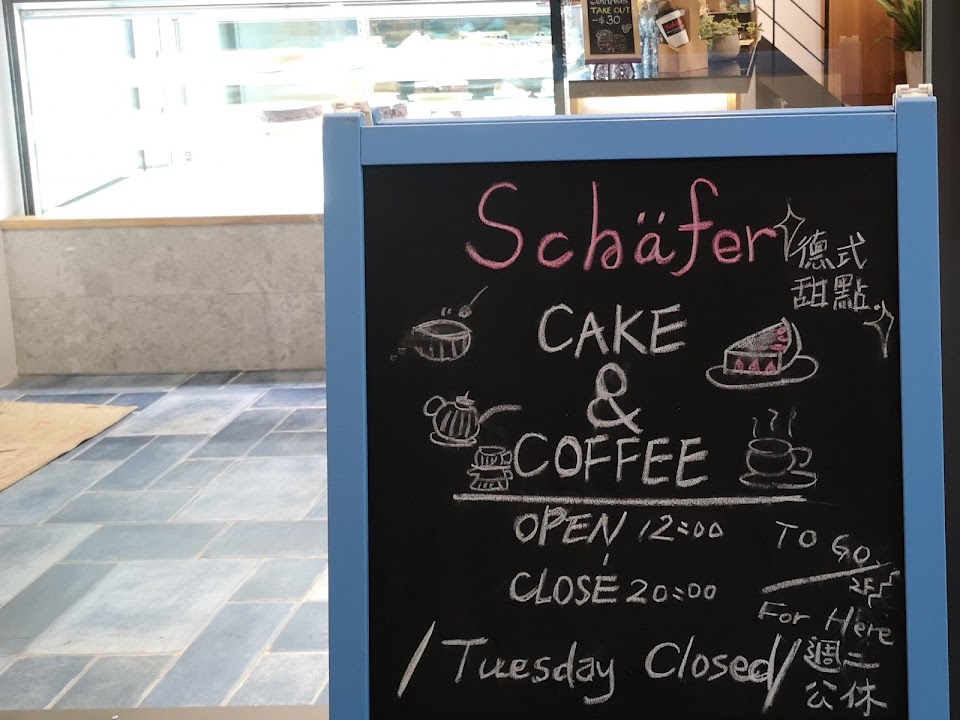 TAKE OUT
-$30
Schäfer
德式
甜點
CAKE
&
COFFEE
OPEN 12:00
CLOSE 20:00
TO GO
2F
For Here
/Tuesday Closed/
週二
公休